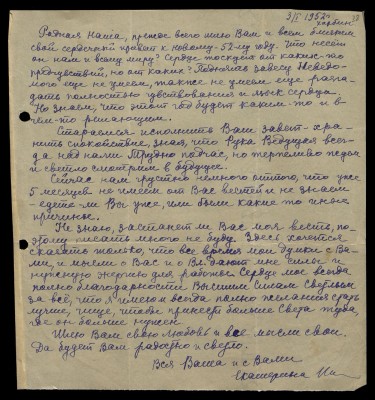 3/II 1952 г.
Харбин
Родная Наша, прежде всего шлю Вам и всем близким
свой сердечный привет к новому - 52-му году. Что несёт
он нам и всему миру? Сердце тоскует от каких-то
предчувствий, но от каких? Поднимать завесу Неведо-
мого еще не умеем, также не умеем еще разга-
дать полностью чувствования и язык сердца.
Но знаем, что этот год будет каким-то и в
чем-то решающим.
Стараемся исполнить Ваш завет - хра-
нить спокойствие, зная, что Рука Ведущая всег-
да над нами. Трудно подчас, но терпеливо ждем
и светло смотрим в будущее.
Сейчас нам грустно немного оттого, что уже
5 месяцев не имеем от Вас вестей и не знаем
- едете ли Вы уже, или были какие-то иные
причины.
Не знаю, застанет ли Вас моя весть, по-
этому писать много не буду. Здесь хочется
сказать только, что все время мои думы с Ва-
ми, и мысли о Вас и о Вл. дают мне силы и
нужную энергию для работы. Сердце мое всегда
полно благодарности Высшим Силам Светлым
за все, что я имею и всегда полно желания стать
лучше, чище, чтобы принести больше Света туда,
где он больше нужен.
Шлю Вам свою Любовь и все мысли свои.
Да будет Вам радостно и светло.
Вся Ваша и с Вами
Екатерина